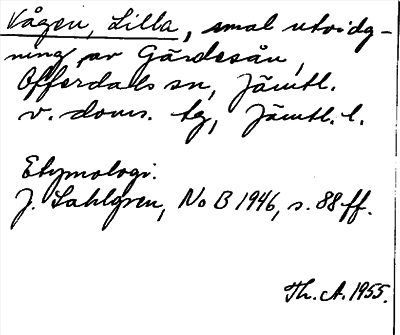 Vågen, Lilla, smal utvidg-
ning av Gärdesån,
Offerdals sn, Jämtl.
v. doms. tg, Jämtl. l.
Etymologi:
J. Sahlgren, NoB 1946, s. 88 ff.
Th. A. 1955.